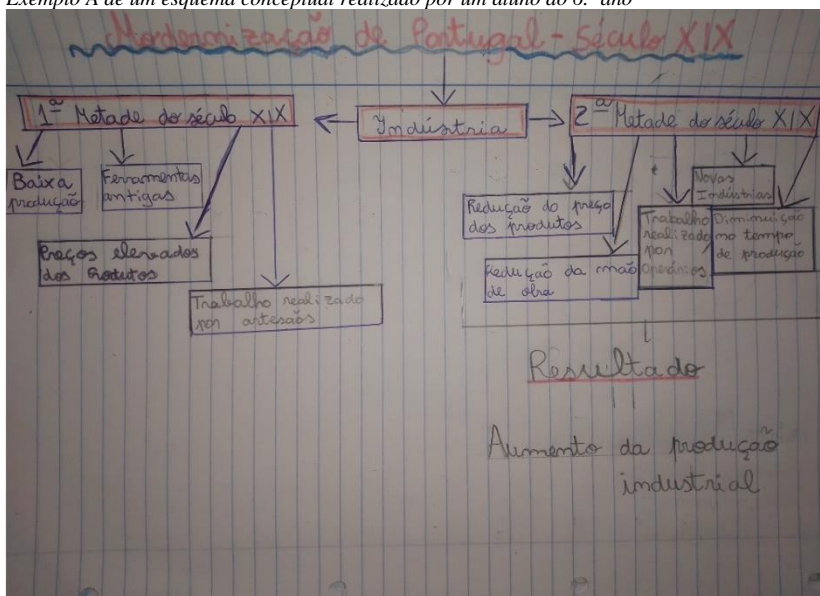 Exemplo A de um esquema conceptual realizado por um aluno do 6.º ano
Modernização de Portugal - Século XIX
1ª Metade do século XIX
Indústria
2ª Metade do século XIX
Baixa
produção
Ferramentas
antigas
Preços elevados
dos Produtos
Trabalho realizado
por artesãos
Redução do preço
dos produtos
Redução da mão
de obra
Trabalho
realizado
por
Operários
Novas
Indústrias
Diminuição
no tempo
de produção
Resultado
Aumento da produção
industrial